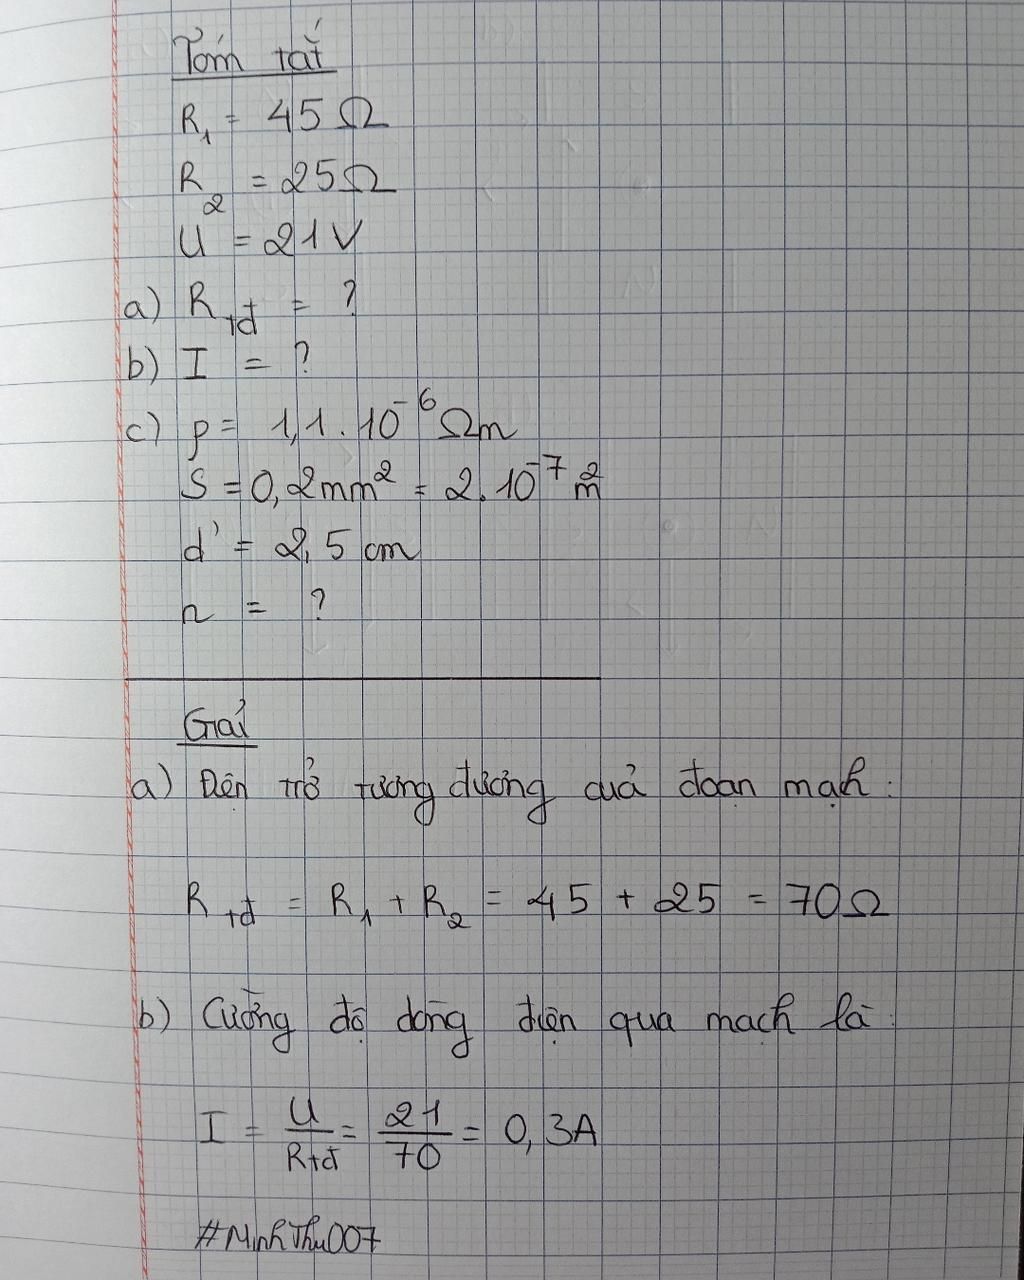 Tóm tắt
R₁ = 45 Ω
R₂ = 25 Ω
U = 21 V
a) Rtđ = ?
b) I = ?
c) ρ = 1,1 . 10⁻⁶ Ωm
S = 0,2 mm² = 2.10⁻⁷ m²
d' = 2,5 cm
n = ?
Giải
a) Điện trở tương đương cuả đoạn mạch :
Rtđ = R₁ + R₂ = 45 + 25 = 70 Ω
b) Cường độ dòng điện qua mạch là :
I = U/Rtđ = 21/70 = 0,3A
#MinhThu007